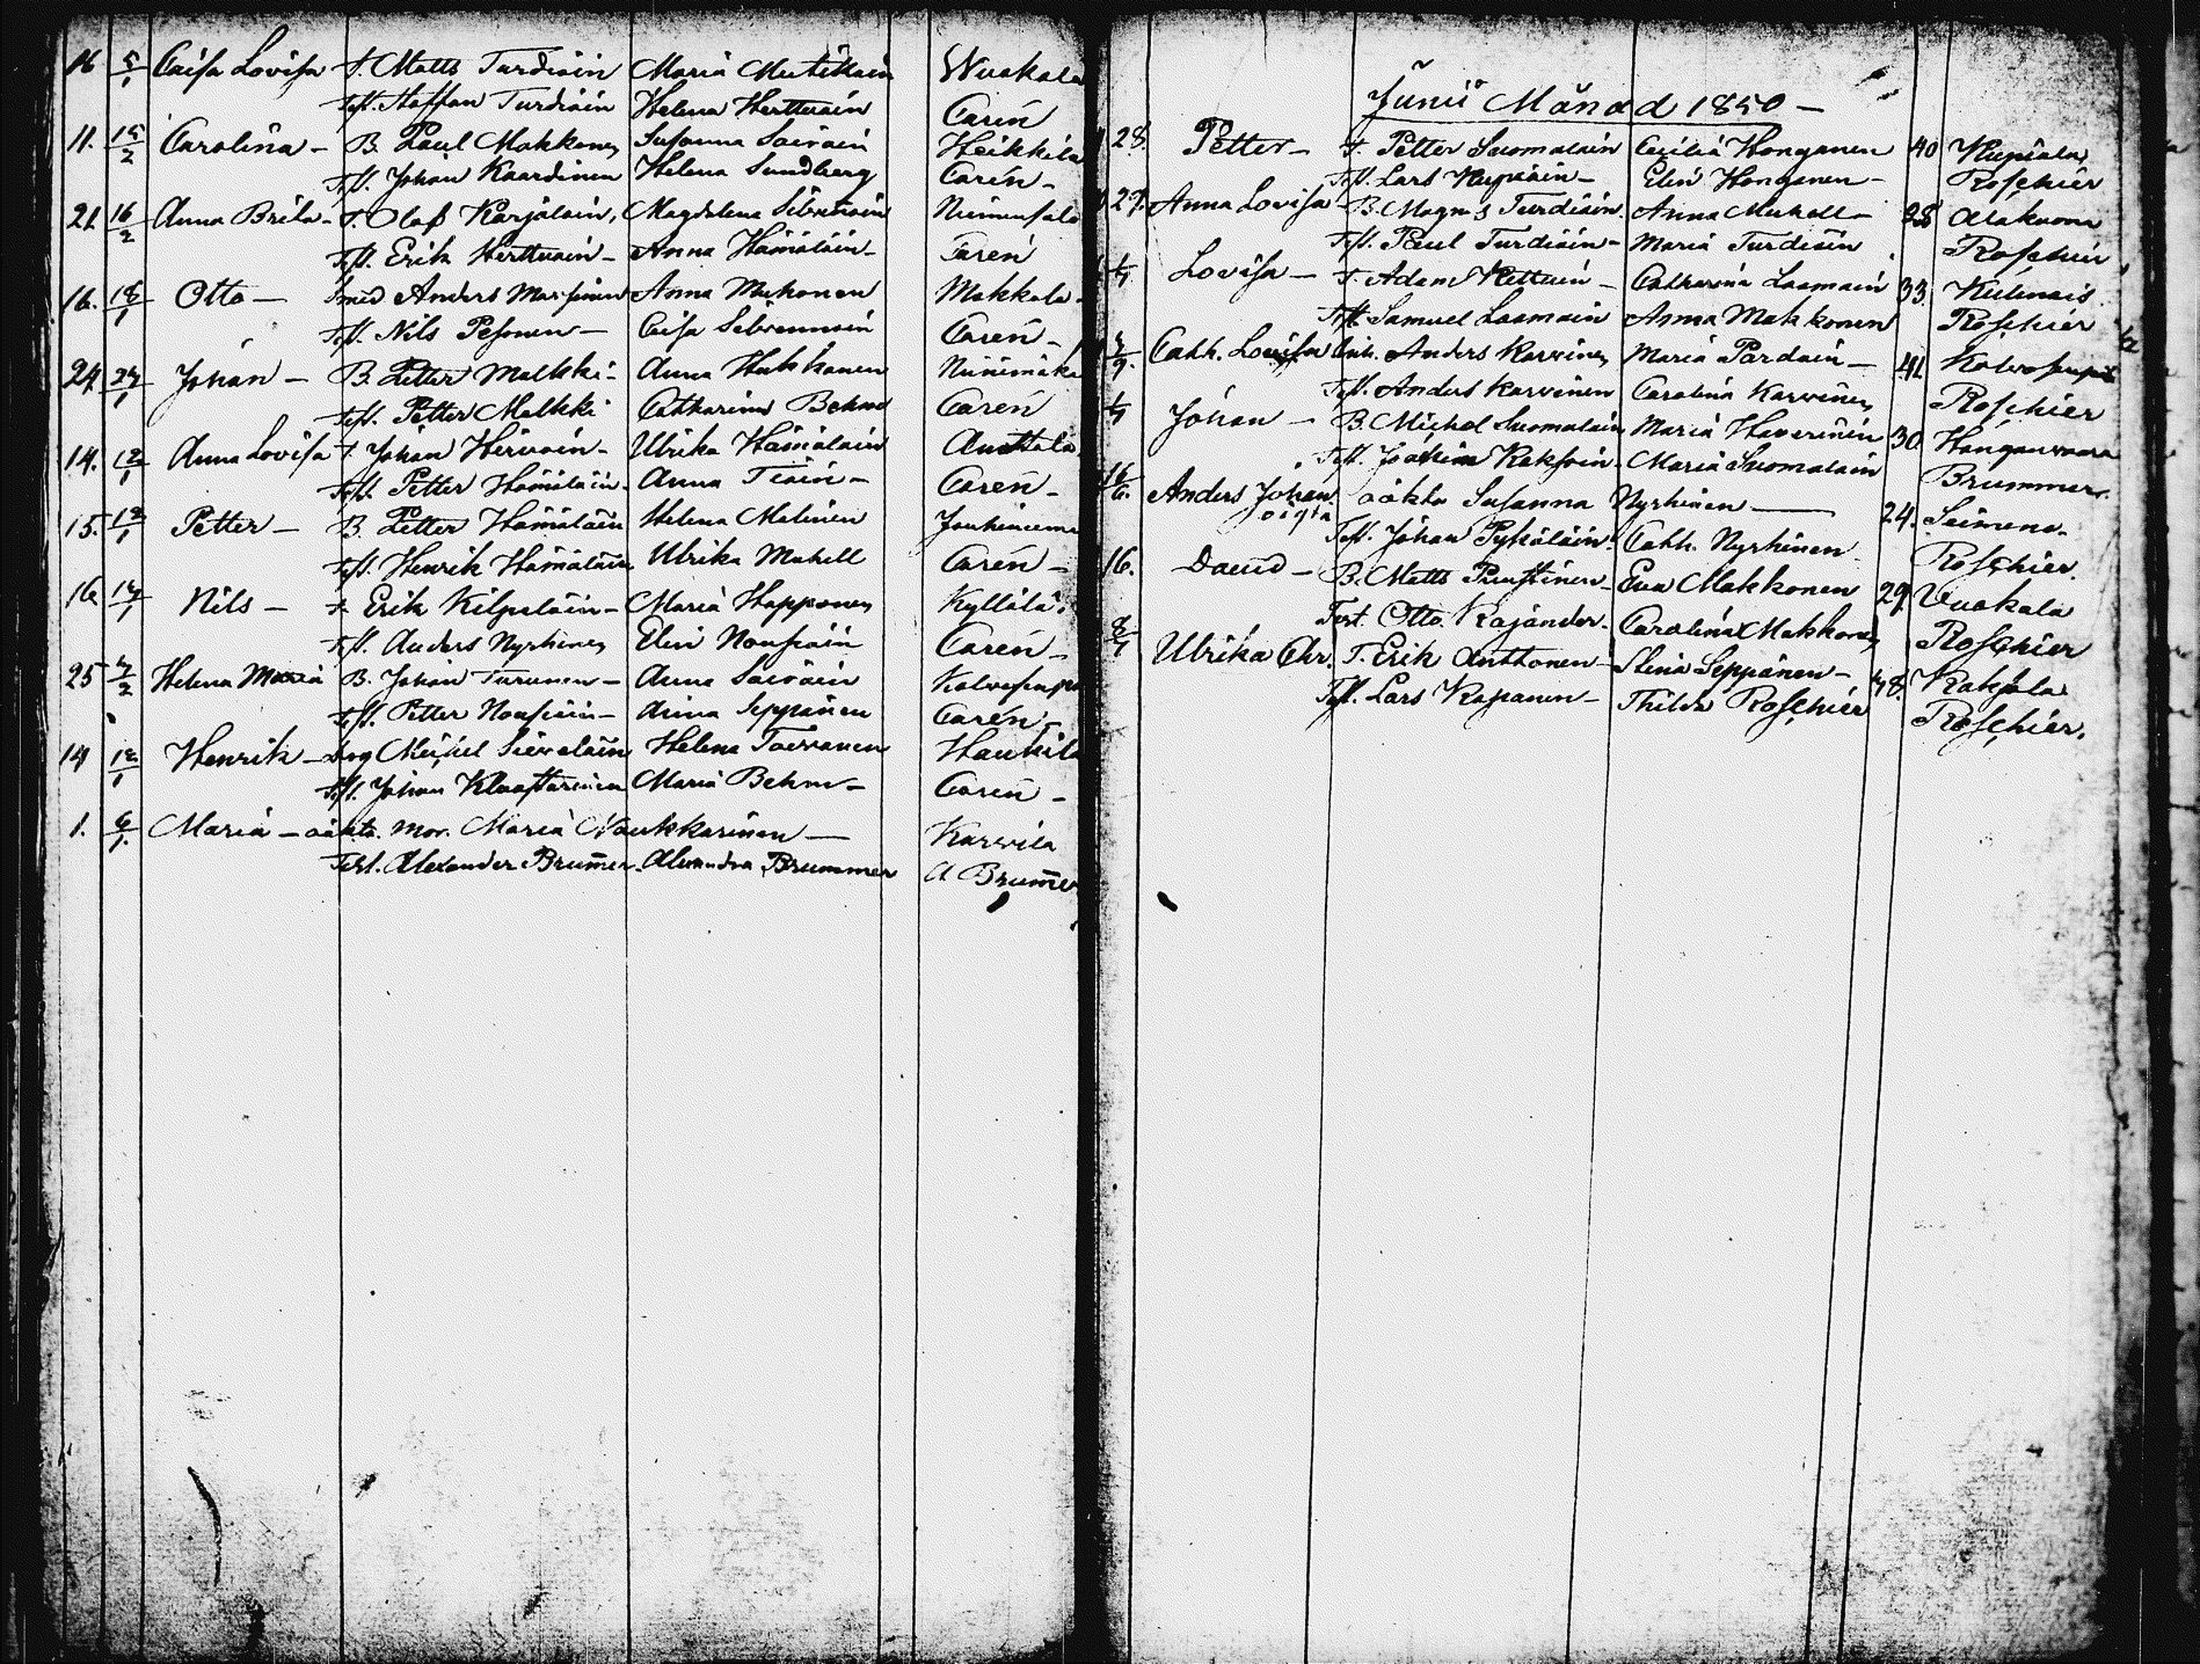 16 5/1 Caisa Lovisa T. Matts Turdiain Maria Mutikain Wuokala
Test. Staffan Turdiain Helena Herttuain Carén
11. 15/2 Carolina – B. Paul Makkonen Susanna Soivain Heikkila
Test. Johan Kaardinen Helena Sundberg Carén –
21 16/2 Anna Brita – T. Olof Karjalain, Magdalena
Test. Erik Herttuain – Anna Hämäläin – Carén
16. 18/1 Otto – Smed Anders Anna Mukonen Makkola –
Test. Nils Pesonen – Caisa Carén –
24 Johan – B. Petter Malkki – Anna Hukkanen Niinimäki
Test. Petter Malkki Catharina Behm Carén
14. 12/1 Anna Lovisa T. Johan Hirvoin – Ulrika Hämäläin
Test. Petter Hämäläin – Anna Tiain – Carén –
15. 12/1 Petter – B. Petter Hämäläin Helena Malinen Jouhiniemi
Test. Henrik Hämäläin Ulrika Makell Carén –
16 14/1 Nils – T. Erik Kilpeläin – Maria Happonen Kyllälä
Test. Anders Nyrhinen Elin Nousiain Carén –
25 Helena Maria B. Johan Turunen – Anna Soivain
Test. Petter Nousiain – Anna Seppänen Carén –
14 12/1 Henrik – Helena Toivanen Haukila
Test. Johan Maria Behm – Carén –
1. 6/1. Maria – oäkta. mor. Maria Naukkarinen – Karvila
Test. Alexander Brummer. Alexandra Brummer A Brummer
Junii Månad 1850 –
28. Petter – T. Petter Suomalain Cecilia Honganen 40 Kupiala
Test. Lars Kupiain – Elin Honganen – Roschier
27. Anna Lovisa – B. Magns Turdiain. Anna Makell – 28 Alakuona
Test. Paul Turdiain – Maria Turdiain Roschier
1/7 Lovisa – T. Adam Kettuin – Catharina Laamain 33. Kulmais
Test. Samuel Laamain Anna Makkonen Roschier
Cath. Lovisa Anders Karvinen Maria Pardain – 41
Test. Anders Karvinen Carolina Karvinen Roschier
1/7 Johan – B. Michel Suomalain Maria Haverinen 30. Hongonvaara
Test. Joakim Kaksoin – Maria Suomalain Brummer.
16/6. Anders Johan oäkta Susanna Nyrhinen – 24. Seimene.
oägta
Test. Johan Pyhäläin. Cath. Nyrhinen Roschier.
16. David – B. Matts Puustinen – Eva Makkonen 29. Vuokala
Test. Otto Rajander. Carolina Makkonen Roschier
8/7 Ulrika Chr. T. Erik Anttonen – Stina Seppänen – 48. Raksola
Test. Lars Kopanen – Thilda Roschier Roschier.